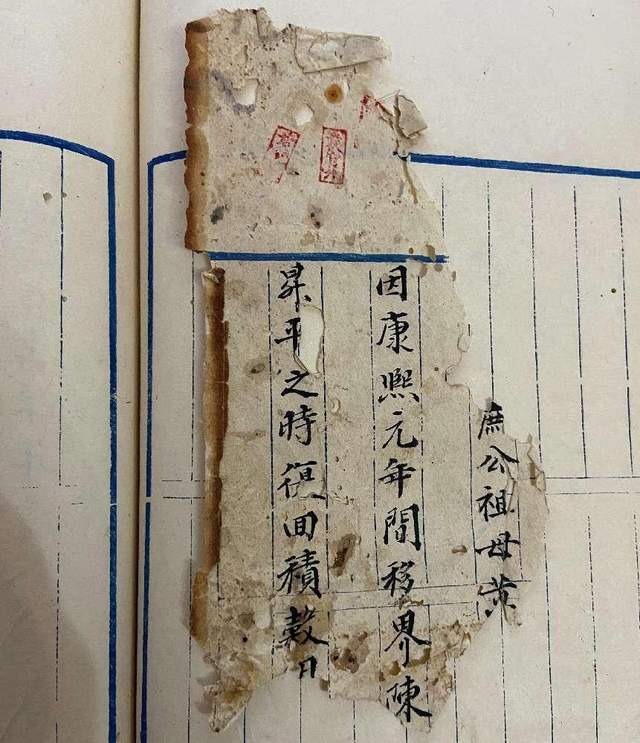 庶公祖母黄
因康熙元年間移界陳
昇平之時復回積穀